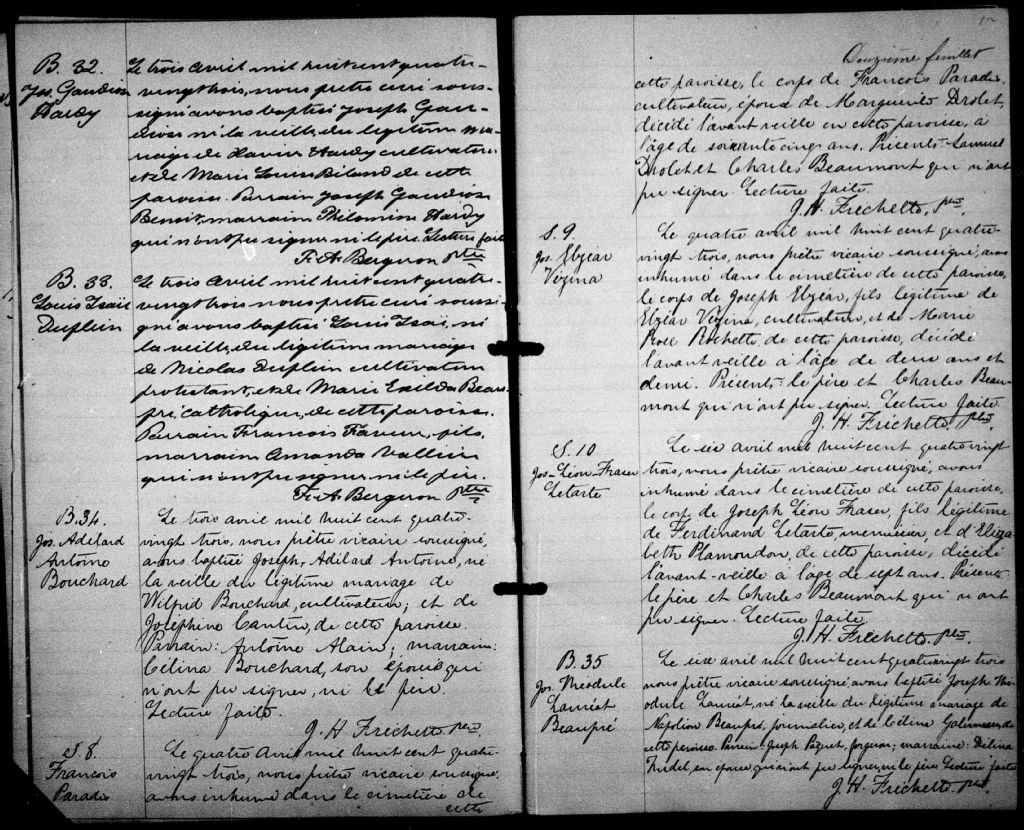 B. 32.
Jos. Gaudiose
Hardy
Le trois avril mil huit cent quatre-
vingt trois, nous prêtre curé sous-
signé avons baptisé Joseph Gau-
diose né la veille, du légitime ma-
riage de Xavier Hardy cultivateur
et de Marie Louise Béland de cette
paroisse. Parrain Joseph Gaudiose
Benoit, marraine Philomène Hardy
qui n'ont pu signer ni le père. Lecture faite
F. A. Bergeron Ptre
B. 33.
Louis Isaïe
Duplein
Le trois avril mil huit cent quatre-
vingt trois nous prêtre curé soussi-
gné avons baptisé Louis Isaïe, né
la veille, du légitime mariage
de Nicolas Duplein cultivateur
protestant, et de Marie Exilda Beau-
pré catholique, de cette paroisse.
Parrain François Faveur, fils,
marraine Amanda Vallièr
qui n'ont pu signer ni le père.
F. A. Bergeron Ptre
B. 34.
Jos. Adélard
Antoine
Bouchard
Le trois avril mil huit cent quatre-
vingt trois, nous prêtre vicaire soussigné,
avons baptisé Joseph, Adélard Antoine, né
la veille du légitime mariage de
Wilfrid Bouchard, cultivateur; et de
Joséphine Cantin, de cette paroisse.
Parrain: Antoine Alain; marraine:
Célina Bouchard, son épouse qui
n'ont pu signer, ni le père.
Lecture faite.
J. H. Fréchette, ptre
S. 8.
François
Paradis
Le quatre avril mil huit cent quatre-
vingt trois, nous prêtre vicaire soussigné
avons inhumé dans le cimetière de
cette
Douzième feuillet
cette paroisse, le corps de François Paradis,
cultivateur, époux de Marguerite Drolet,
décédé l'avant veille en cette paroisse, à
l'âge de soixante cinq ans. Présents: Samuel
Drolet et Charles Beaumont qui n'ont
pu signer. Lecture faite.
J. H. Fréchette, ptre.
S. 9.
Jos. Elzéar
Vézina
Le quatre avril mil huit cent quatre-
vingt trois, nous prêtre vicaire soussigné, avons
inhumé dans le cimetière de cette paroisse,
le corps de Joseph Elzéar, fils légitime de
Elzéar Vézina, cultivateur, et de Marie
Rose Rochette, de cette paroisse, décédé
l'avant veille à l'âge de deux ans et
demi. Présents: le père et Charles Beau-
mont qui n'ont pu signer. Lecture faite.
J. H. Fréchette ptre.
S. 10
Jos-Léon Fraser
Letarte
Le six avril mil huit cent quatre vingt
trois, nous prêtre vicaire soussigné, avons
inhumé dans le cimetière de cette paroisse,
le corps de Joseph Léon Fraser, fils légitime
de Ferdinand Letarte, menuisier, et d'Eliza
beth Plamondon, de cette paroisse, décédé
l'avant-veille à l'âge de sept ans. Présents:
le père et Charles Beaumont qui n'ont
pu signer. Lecture faite.
J. H. Fréchette ptre.
B. 35
Jos. Mérodule
Lauréat
Beaupré
Le six avril mil huit cent quatre vingt trois
nous prêtre vicaire soussigné, avons baptisé Joseph Mé-
rodule Lauréat, né la veille du légitime mariage de
Napoléon Beaupré, journalier, et de Céline Galarneau, de
cette paroisse. Parrain: Joseph Paquet, forgeron; marraine: Délina
Trudel, son épouse, qui n'ont pu signer, ni le père. Lecture faite
J. H. Fréchette ptre.